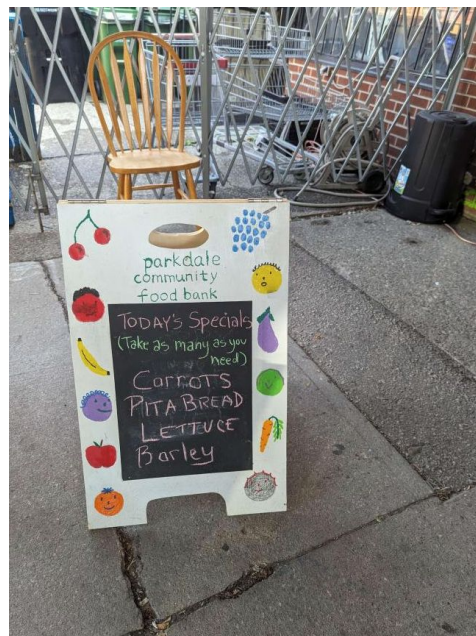 parkdale
community
food bank
TODAY'S Specials
(Take as many as you
need)
CARROTS
PITA BREAD
LETTUCE
Barley